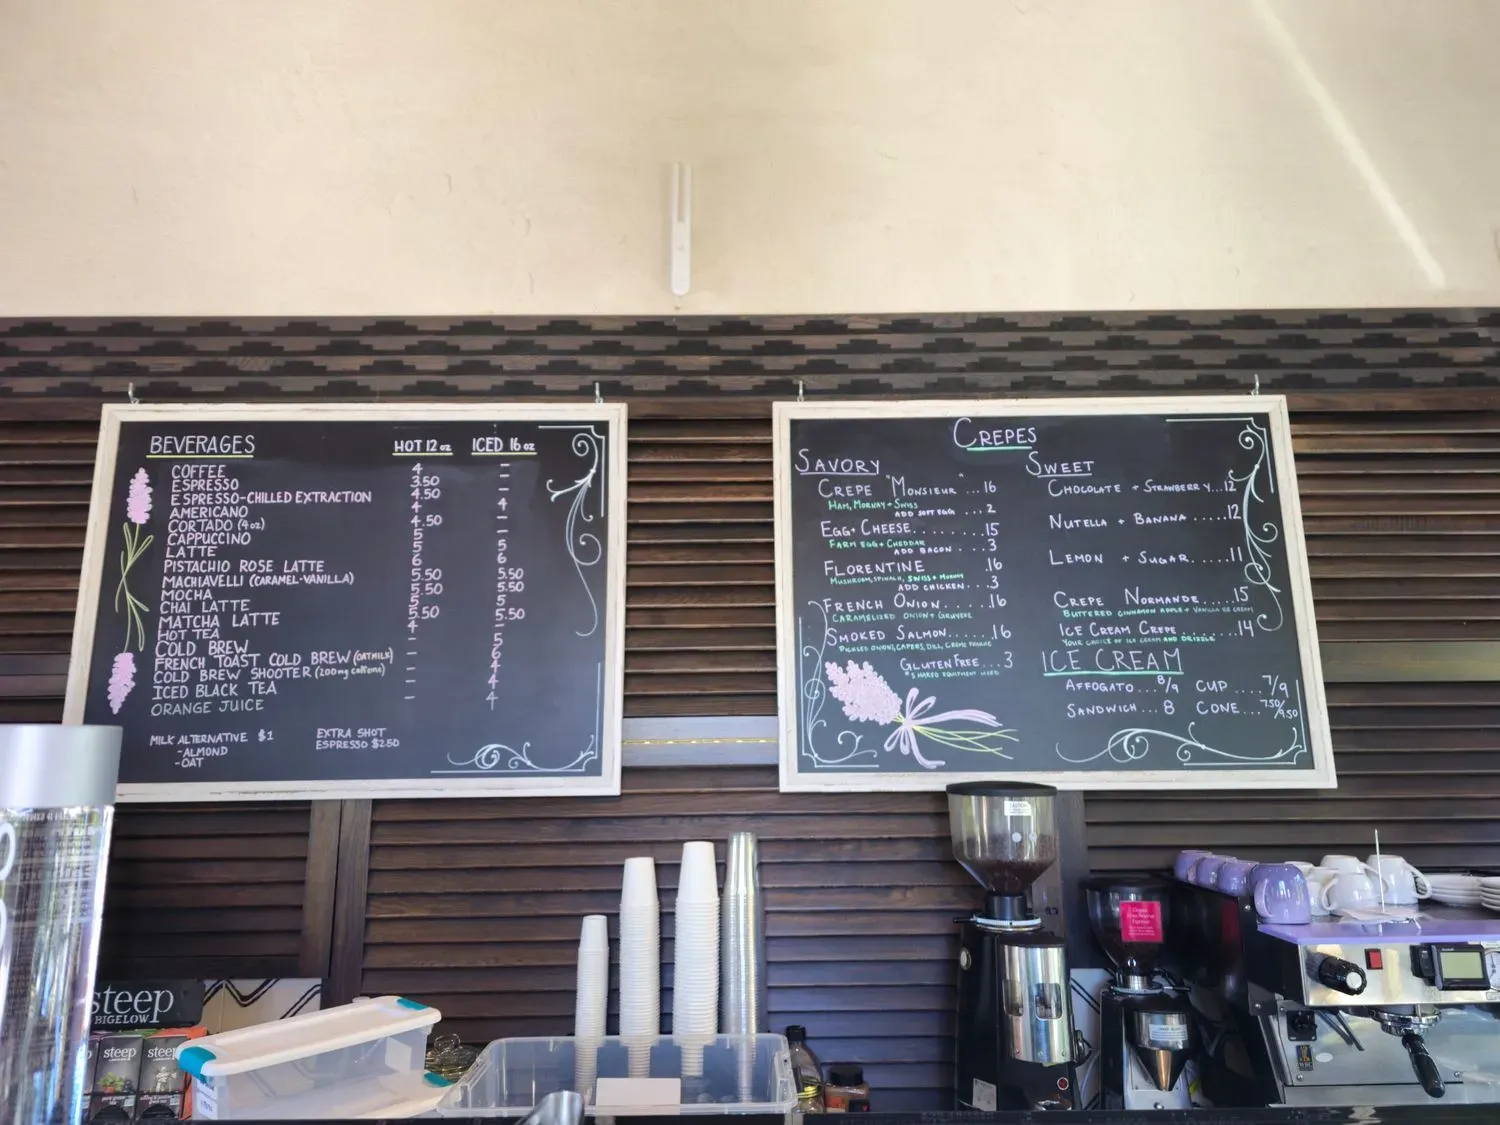 BEVERAGES HOT 12 oz ICED 16 oz
COFFEE 4 –
ESPRESSO 3.50 –
ESPRESSO-CHILLED EXTRACTION 4.50 –
AMERICANO 4 4
CORTADO (4oz) 4.50 –
CAPPUCCINO 5 5
LATTE 5 5
PISTACHIO ROSE LATTE 6 6
MACHIAVELLI (CARAMEL-VANILLA) 5.50 5.50
MOCHA 5.50 5.50
CHAI LATTE 5 5
MATCHA LATTE 5.50 5.50
HOT TEA 4 –
COLD BREW – 5
FRENCH TOAST COLD BREW (OATMILK) – 6
COLD BREW SHOOTER (200mg caffeine) – 4
ICED BLACK TEA – 4
ORANGE JUICE – 4
MILK ALTERNATIVE $1
-ALMOND
-OAT
EXTRA SHOT
ESPRESSO $2.50
CREPES
SAVORY
CREPE "MONSIEUR" ...16
HAM, MORNAY + SWISS
ADD SOFT EGG ....2
EGG + CHEESE........15
FARM EGG + CHEDDAR
ADD BACON....3
FLORENTINE .16
MUSHROOM, SPINACH, SWISS + MORNAY
ADD CHICKEN...3
FRENCH ONION.....16
CARAMELIZED ONION + GRUYERE
SMOKED SALMON......16
PICKLED ONIONS, CAPERS, DILL, CREME FRAICHE
GLUTEN FREE...3
*SHARED EQUIPMENT USED
SWEET
CHOCOLATE + STRAWBERRY...12
NUTELLA + BANANA .....12
LEMON + SUGAR.....11
CREPE NORMANDE....15
BUTTERED CINNAMON APPLE + VANILLA ICE CREAM
ICE CREAM CREPE ....14
YOUR CHOICE OF ICE CREAM AND DRIZZLE
ICE CREAM
AFFOGATO...8/9 CUP ....7/9
SANDWICH...8 CONE...7.50/9.50
steep
BIGELOW
steep
steep